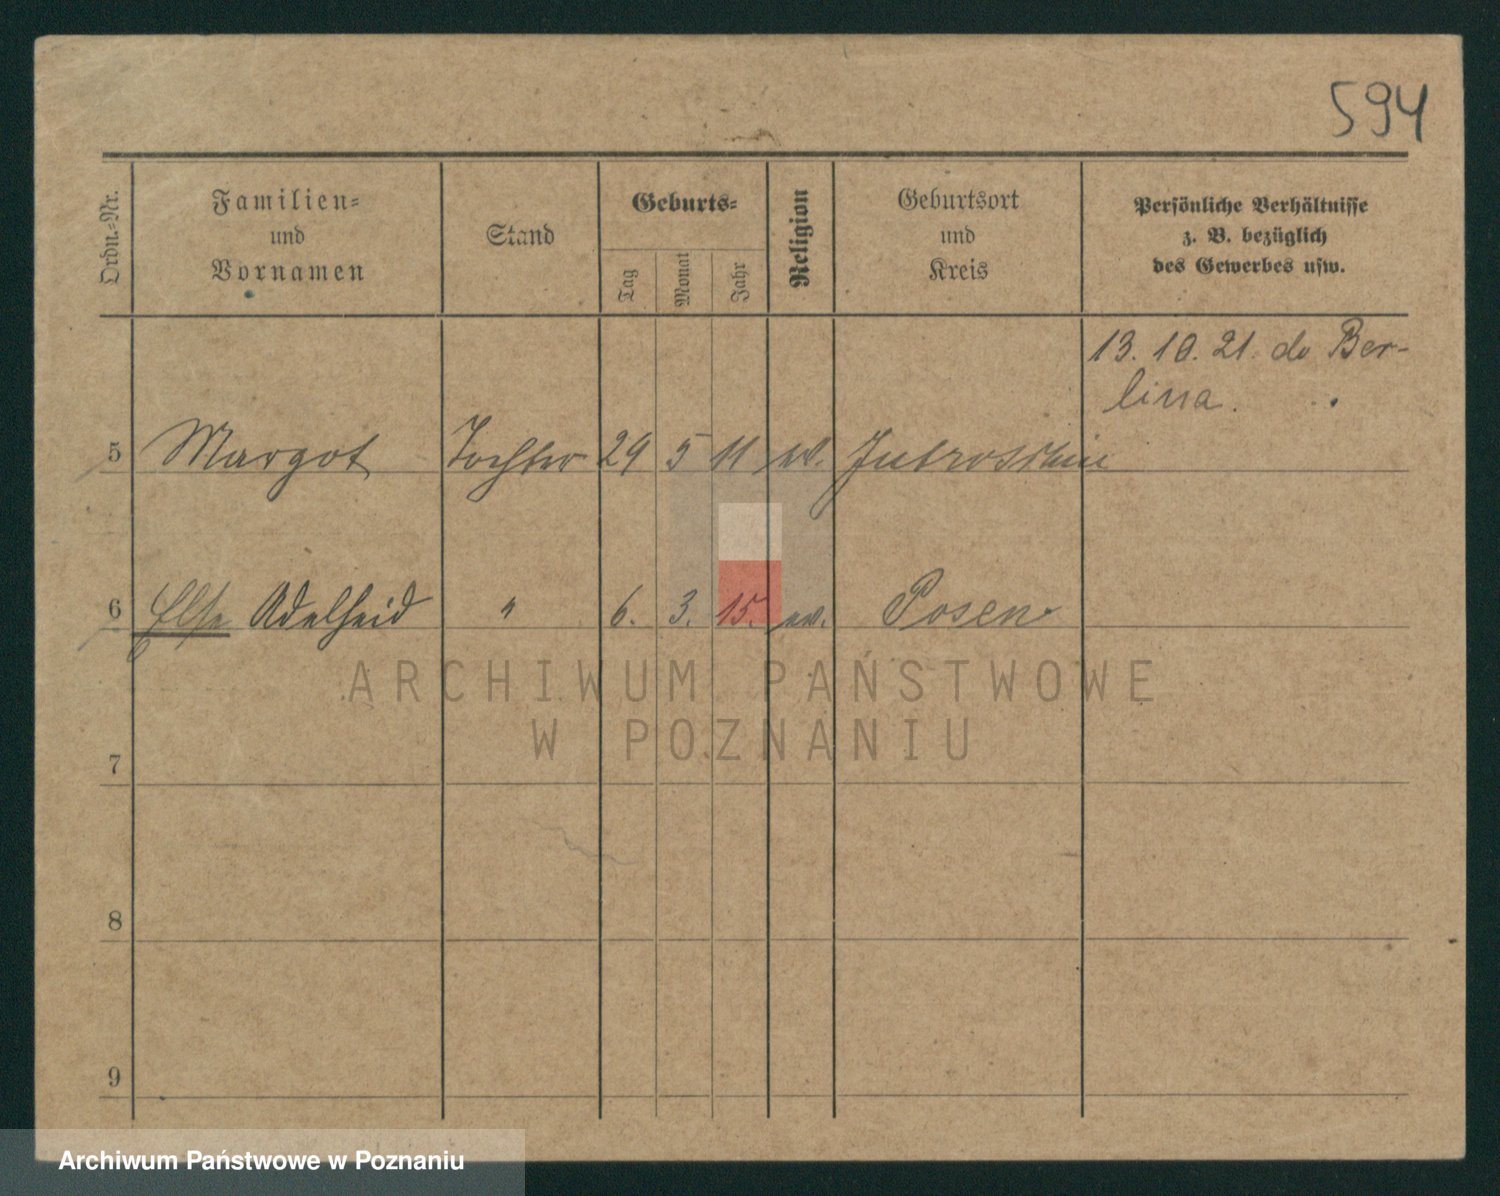 594
Ordn.-Nr.
Familien-
und
Vornamen
Stand
Geburts-
Tag
Monat
Jahr
Religion
Geburtsort
und
Kreis
Persönliche Verhältnisse
z. B. bezüglich
des Gewerbes usw.
13. 10. 21. do Ber-
lina.
5 Margot Tochter 29 5 11 ev. Jutroschin
6 Else Adelheid " 6. 3. 15. ev. Posen
ARCHIWUM PAŃSTWOWE
W POZNANIU
7
8
9
Archiwum Państwowe w Poznaniu